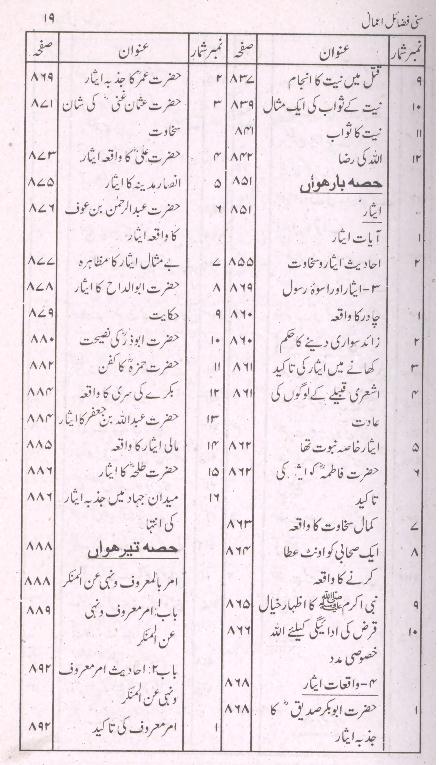 سنی فضائل اعمال ۱۹
نمبر شمار عنوان صفحہ
۹ قتل میں نیت کا انجام ۸۳۷
۱۰ نیت کے ثواب کی ایک مثال ۸۳۹
۱۱ نیت کا ثواب ۸۴۱
۱۲ اللہ کی رضا ۸۴۲
حصہ بارھواں ۸۵۱
ایثار ۸۵۱
۱ آیات ایثار
۲ احادیث ایثار وسخاوت ۸۵۵
۳-ایثار اور اسوۂ رسول ۸۶۹
۱ چادر کا واقعہ ۸۶۰
۲ زائد سواری دینے کا حکم ۸۶۰
۳ کھانے میں ایثار کی تاکید ۸۶۱
۴ اشعری قبیلے کے لوگوں کی ۸۶۱
عادت
۵ ایثار خاصہ نبوت تھا ۸۶۲
۶ حضرت فاطمہؓ کو ایثار کی ۸۶۲
تاکید
۷ کمال سخاوت کا واقعہ ۸۶۳
۸ ایک صحابی کو اونٹ عطا ۸۶۴
کرنے کا واقعہ
۹ نبی اکرم ﷺ کا اظہار خیال ۸۶۵
۱۰ قرض کی ادائیگی کیلئے اللہ ۸۶۶
خصوصی مدد
۴-واقعات ایثار ۸۶۸
۱ حضرت ابوبکر صدیقؓ کا ۸۶۸
جذبہ ایثار
نمبر شمار عنوان صفحہ
۲ حضرت عمرؓ کا جذبہ ایثار ۸۶۹
۳ حضرت عثمان غنیؓ کی شان ۸۷۱
سخاوت
۴ حضرت علیؓ کا واقعہ ایثار ۸۷۳
۵ انصار مدینہ کا ایثار ۸۷۵
۶ حضرت عبدالرحمٰن بن عوف ۸۷۶
کا واقعہ ایثار
۷ بے مثال ایثار کا مظاہرہ ۸۷۷
۸ حضرت ابوالداح کا ایثار ۸۷۸
۹ حکایت ۸۷۹
۱۰ حضرت ابوذرؓ کی نصیحت ۸۸۰
۱۱ حضرت حمزہؓ کا کفن ۸۸۲
۱۲ بکرے کی سری کا واقعہ ۸۸۴
۱۳ حضرت عبداللہ بن جعفر کا ایثار ۸۸۴
۱۴ مالی ایثار کا واقعہ ۸۸۵
۱۵ حضرت طلحہؓ کا ایثار ۸۸۶
۱۶ میدان جہاد میں جذبہ ایثار ۸۸۶
کی انتہا
حصہ تیرھواں ۸۸۸
امر بالمعروف ونہی عن المنکر ۸۸۸
باب۱: امر معروف ونہی ۸۸۹
عن المنکر
باب۲: احادیث امر معروف ۸۹۲
ونہی عن المنکر
۱ امر معروف کی تاکید ۸۹۲